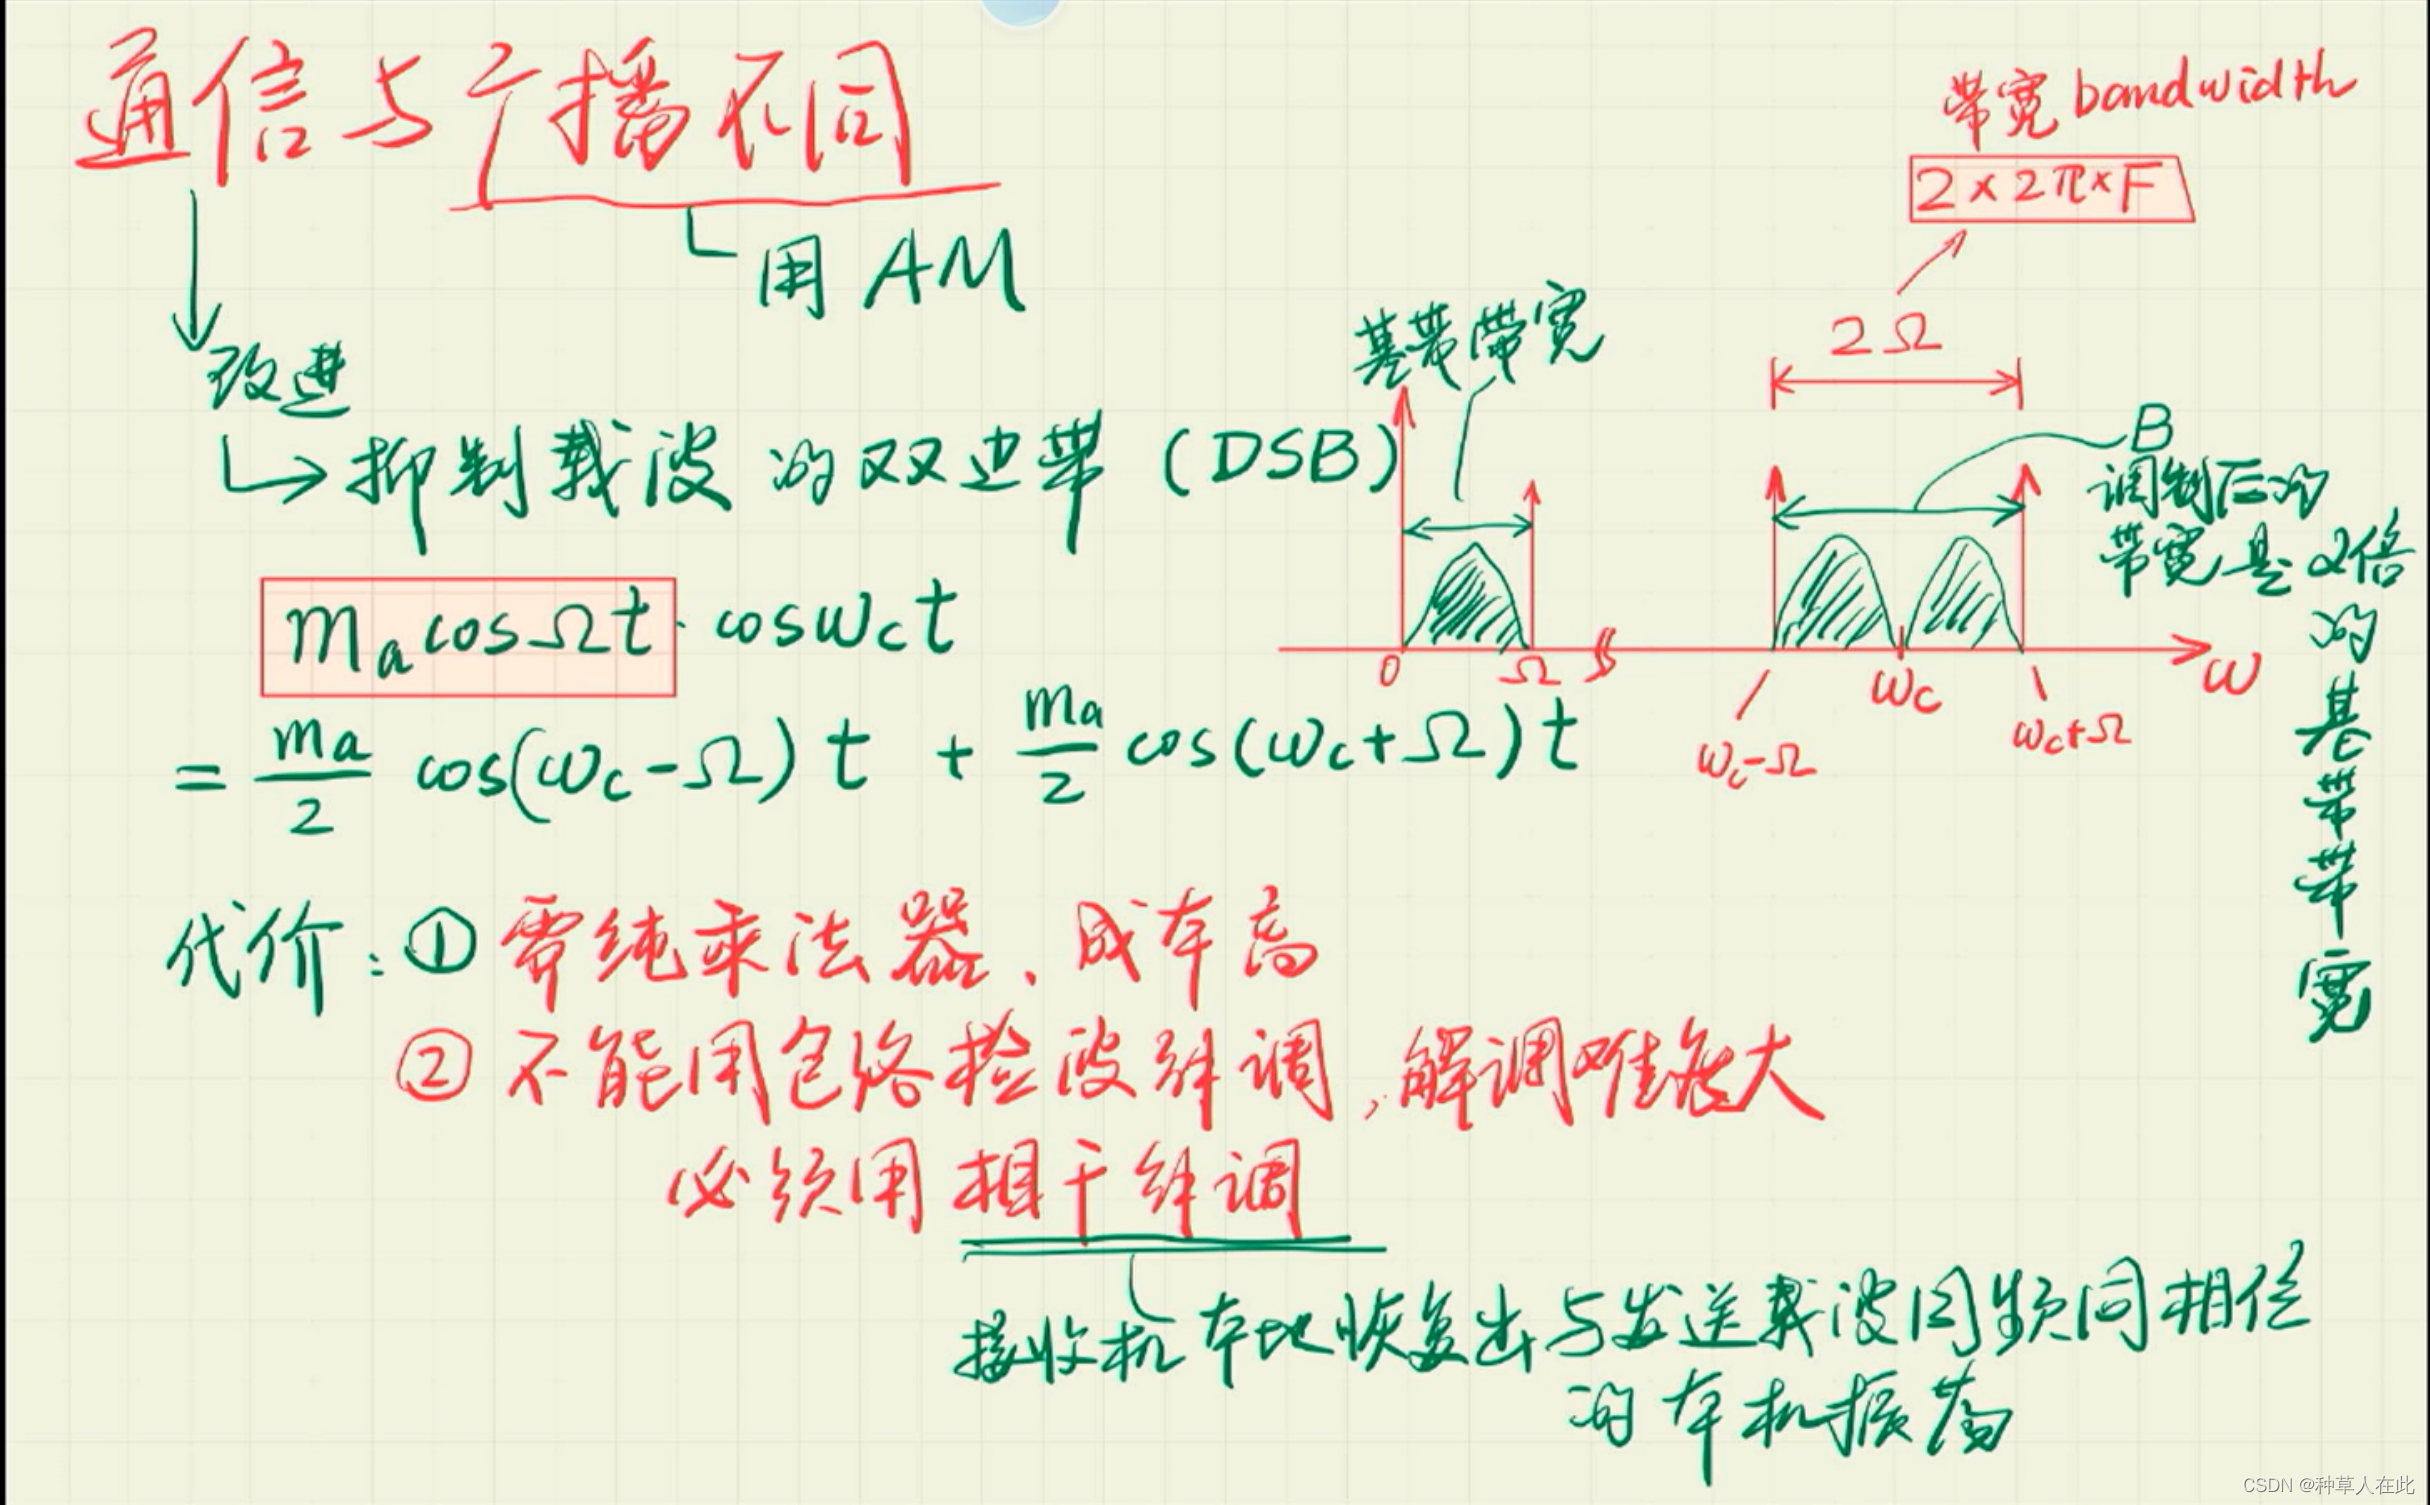 通信与广播不同
用 AM
改进
抑制载波的双边带 (DSB)
m_a cosΩt · cosω_c t
= m_a/2 cos(ω_c-Ω)t + m_a/2 cos(ω_c+Ω)t
带宽 bandwidth
2×2π×F
2Ω
基带带宽
B
调制后的
带宽是2倍
的基带带宽
0
Ω
ω_c-Ω
ω_c
ω_c+Ω
ω
代价: ① 需纯乘法器、成本高
② 不能用包络检波解调, 解调难度大
必须用相干解调
接收机本地恢复出与发送载波同频同相位
的本机振荡
CSDN @种草人在此